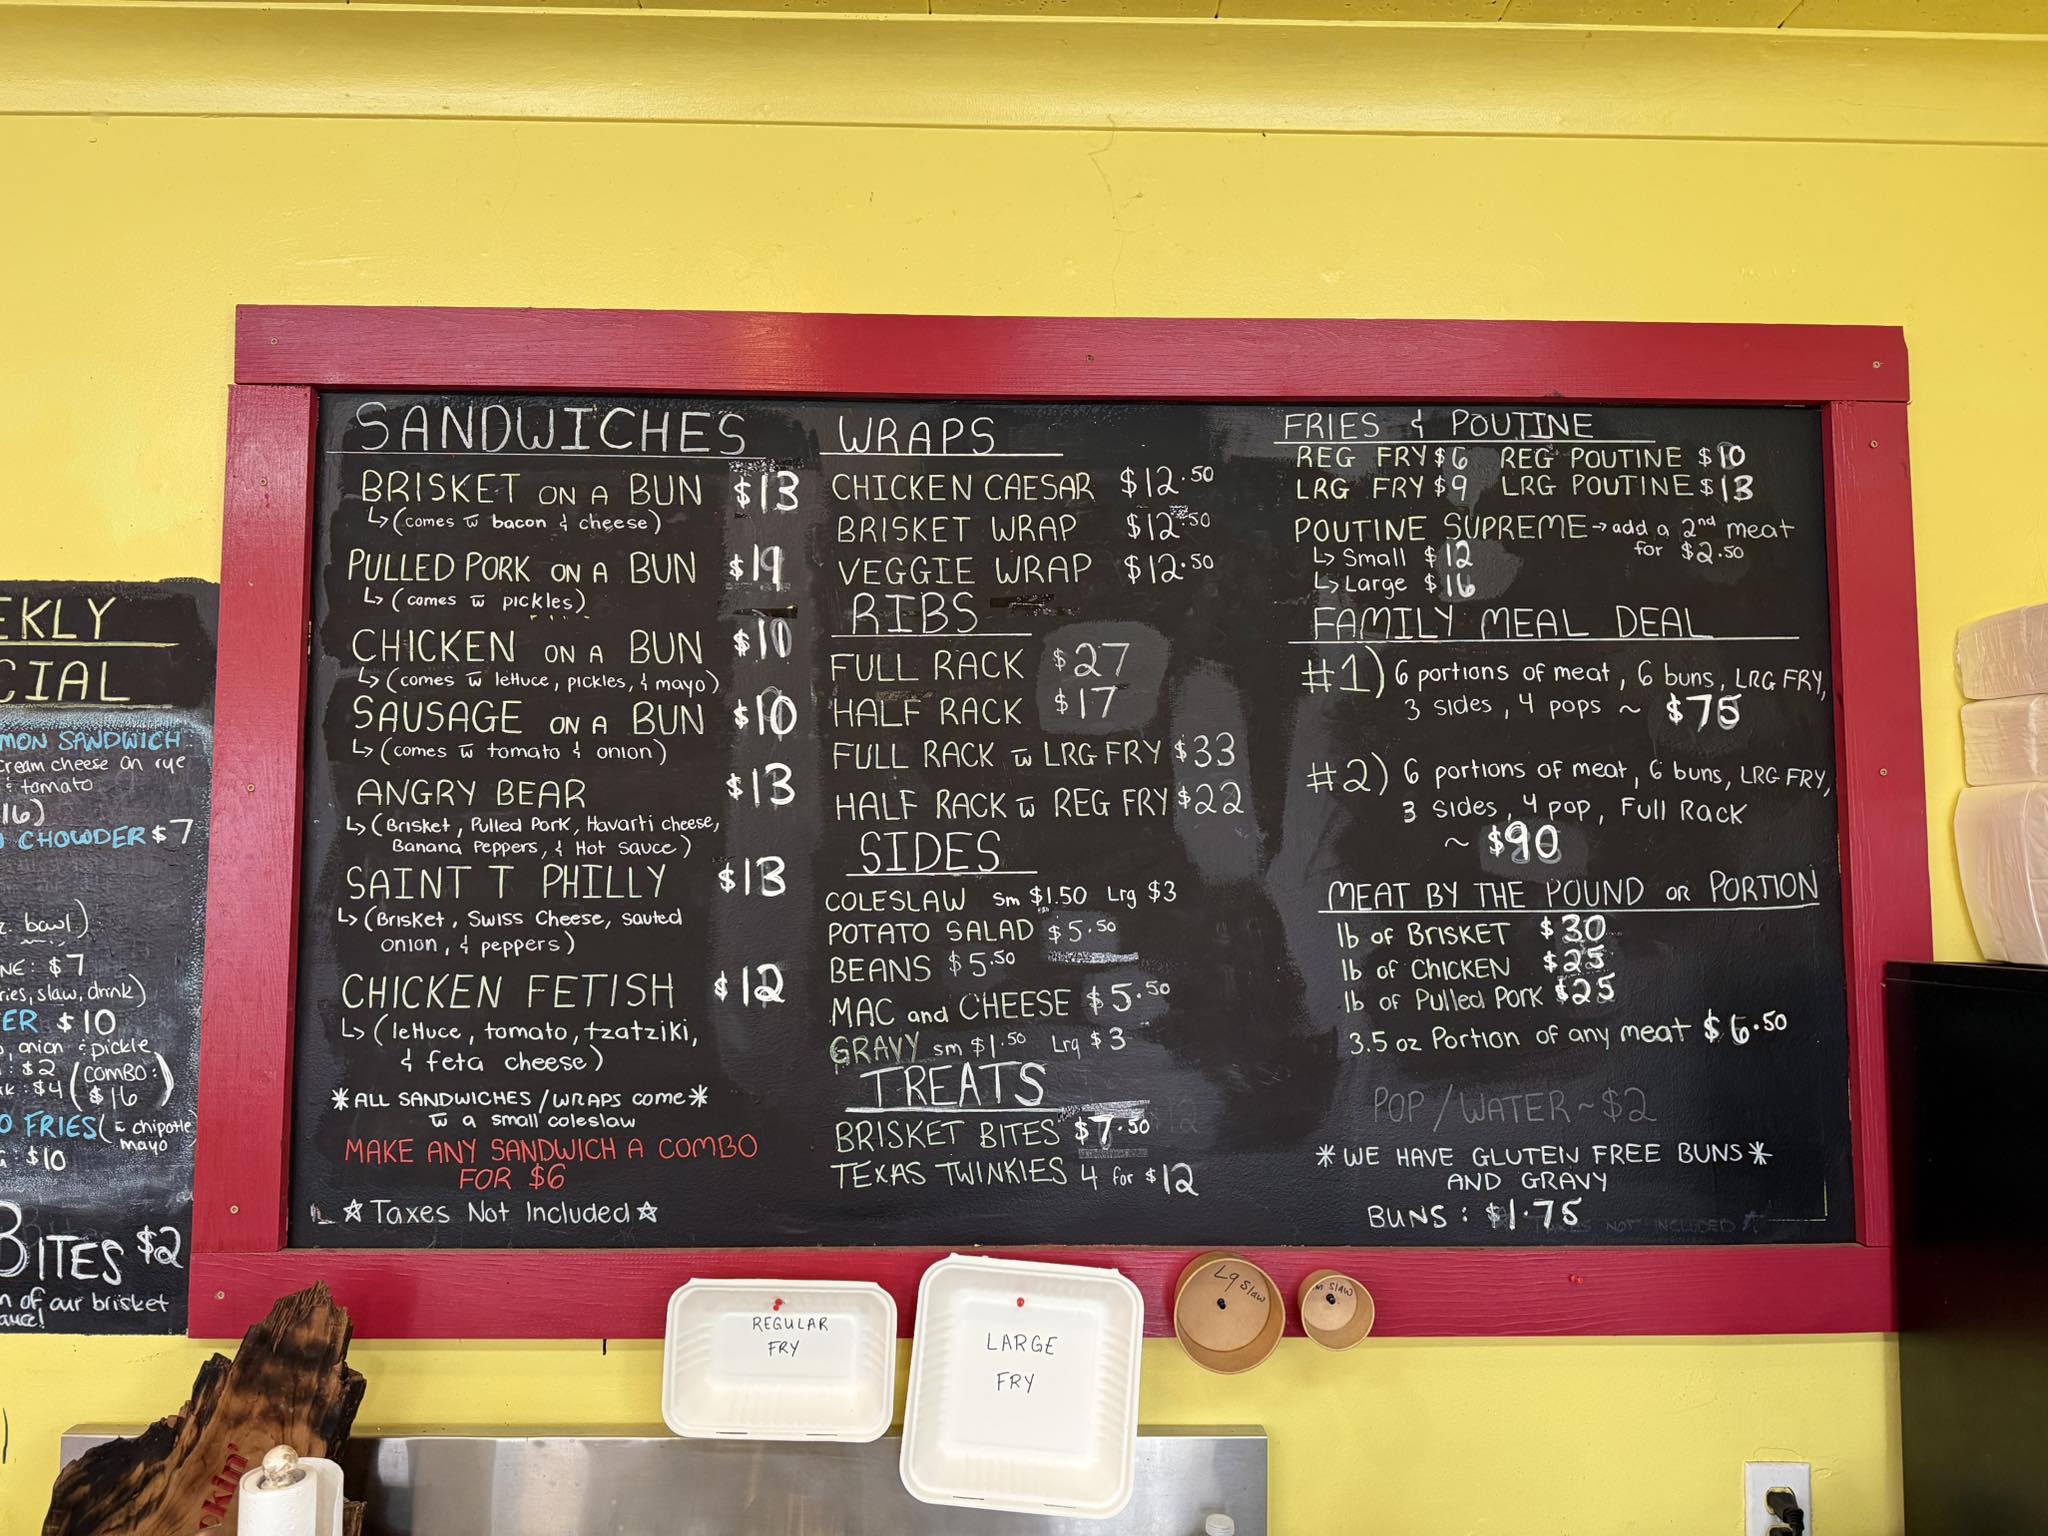 SANDWICHES
BRISKET ON A BUN $13
↳ (comes w̄ bacon & cheese)
PULLED PORK ON A BUN
↳ (comes w̄ pickles)
CHICKEN ON A BUN
↳ (comes w̄ lettuce, pickles, & mayo)
SAUSAGE ON A BUN $10
↳ (comes w̄ tomato & onion)
ANGRY BEAR $13
↳ (Brisket, Pulled Pork, Havarti cheese,
Banana Peppers, & Hot Sauce)
SAINT T PHILLY $13
↳ (Brisket, Swiss Cheese, sauted
onion, & peppers)
CHICKEN FETISH $12
↳ (lettuce, tomato, tzatziki,
& feta cheese)
*ALL SANDWICHES/WRAPS come*
w̄ a small coleslaw
MAKE ANY SANDWICH A COMBO
FOR $6
☆ Taxes Not Included ☆
WRAPS
CHICKEN CAESAR $12.50
BRISKET WRAP $12.50
VEGGIE WRAP $12.50
RIBS
FULL RACK $27
HALF RACK $17
FULL RACK w̄ LRG FRY $33
HALF RACK w̄ REG FRY $22
SIDES
COLESLAW Sm $1.50 Lrg $3
POTATO SALAD $5.50
BEANS $5.50
MAC and CHEESE $5.50
GRAVY sm $1.50 Lrg $3
TREATS
BRISKET BITES $7.50
TEXAS TWINKIES 4 for $12
FRIES & POUTINE
REG FRY $6 REG POUTINE $10
LRG FRY $9 LRG POUTINE $13
POUTINE SUPREME → add a 2nd meat
for $2.50
↳ Small $12
↳ Large $16
FAMILY MEAL DEAL
#1) 6 portions of meat, 6 buns, LRG FRY,
3 sides, 4 pops ~ $75
#2) 6 portions of meat, 6 buns, LRG FRY,
3 sides, 4 pop, Full Rack
~ $90
MEAT BY THE POUND OR PORTION
lb of BRISKET $30
lb of CHICKEN $25
lb of Pulled Pork $25
3.5 oz Portion of any meat $6.50
POP/WATER ~ $2
*WE HAVE GLUTEN FREE BUNS*
AND GRAVY
BUNS: $1.75
TAXES NOT INCLUDED
EKLY
CIAL
MON SANDWICH
cream cheese on rye
& tomato
16)
CHOWDER $7
bowl)
NE: $7
ries, slaw, drink)
ER $10
onion & pickle
: $2 (COMBO:
k: $4 $16)
O FRIES (w̄ chipotle
mayo
: $10
BITES $2
n of our brisket
auce!
REGULAR
FRY
LARGE
FRY
Lg Slaw
m Slaw
kin'